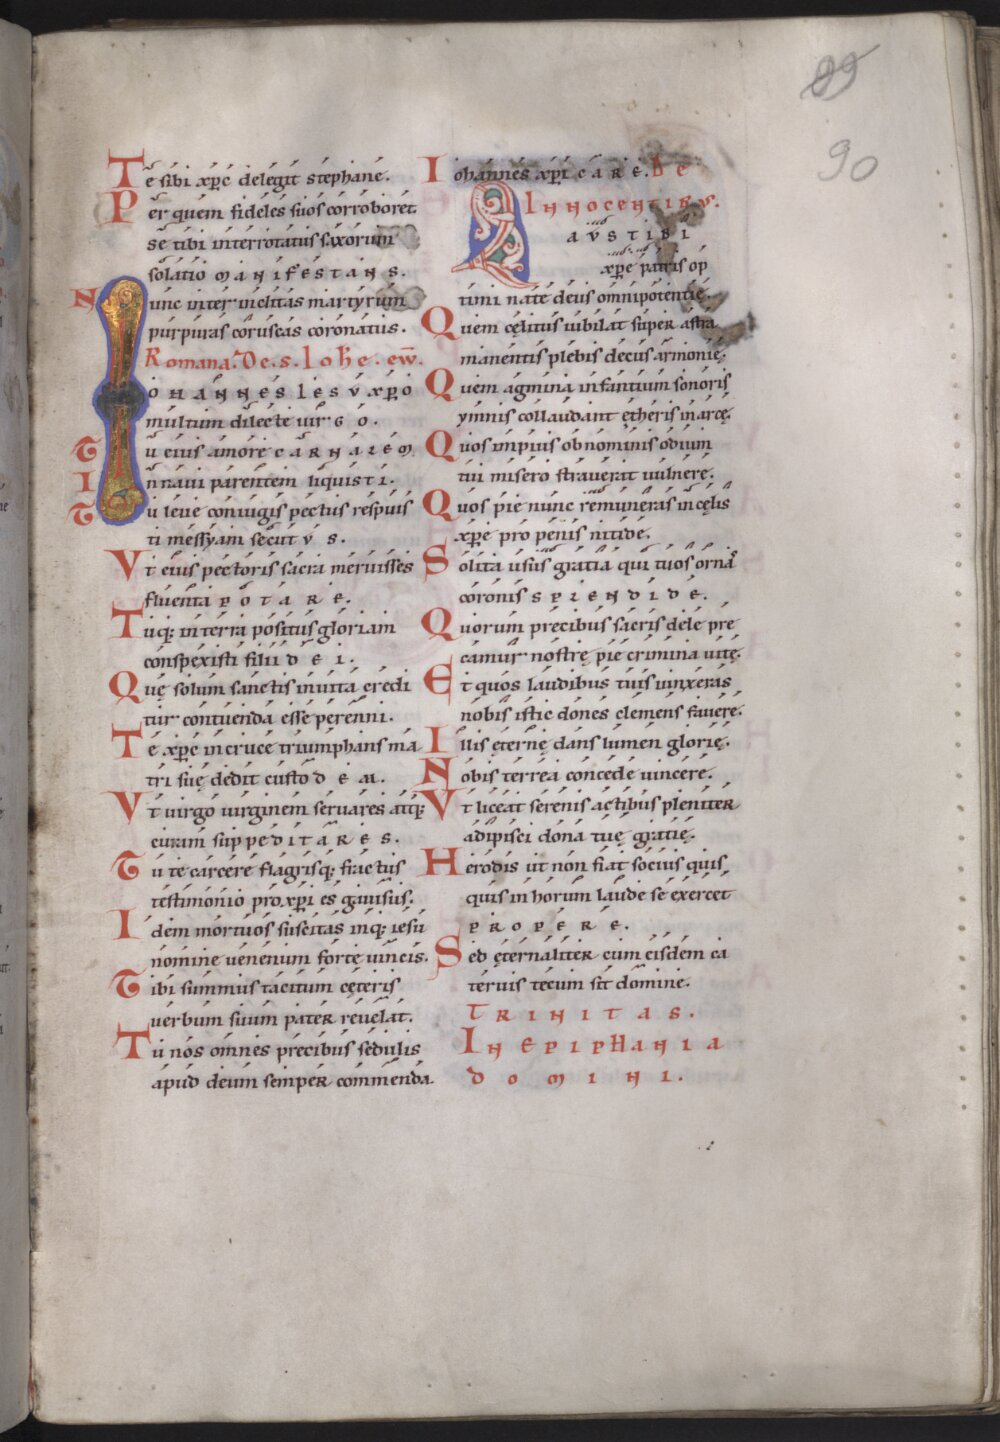 89
90
Te sibi xp̄c delegit stephane.
Per quem fideles suos corroboret
se tibi inter rotatus saxorum
solatio manifestans.
Nunc inter inclitas martyrum
purpuras coruscas coronatus.
Romana. De. s. Ioħe. ew̄.
Iohannes Iesu xp̄o
multum dilecte uirgo.
Tu eius amore carnalem
In naui parentem liquisti.
Tu leue coniugis pectus respuis
ti messyam secutus.
Vt eius pectoris sacra meruisses
fluenta potare.
Tuq; in terra positus gloriam
conspexisti filii dei.
Quę solum sanctis in uita credi
tur contuenda esse perenni.
Te xp̄c in cruce triumphans ma
tri suę dedit custodem.
Vt uirgo uirginem seruares atq;
curam suppeditares.
Tu te carcere flagrisq; fractus
testimonio pro xp̄i es gauisus.
Idem mortuos suscitas inq; iesu
nomine uenenum forte uincis.
Tibi summus tacitum cęteris
uerbum suum pater reuelat.
Tu nos omnes precibus sedulis
apud deum semper commenda.
Iohannes xp̄i care. De
Innocentibus.
Laus tibi
xp̄e patris op
timi nate deus omnipotentię.
Quem cęlitus iubilat super astra
manentis plebis decus armonię;
Quem agmina infantium sonoris
ymnis collaudant ętheris in arce.
Quos impius ob nominis odium
tui misero strauerat uulnere.
Quos pie nunc remuneras in cęlis
xp̄e pro penis nitide.
Solita usus gratia qui tuos orna
coronis splendide.
Quorum precibus sacris dele pre
camur nostrę pie crimina uitę.
Et quos laudibus tuis uinxeras
nobis istic dones clemens fauere.
Illis ęternę dans lumen glorię.
Nobis terrea concede uincere.
Vt liceat serenis actibus pleniter
adipisci dona tuę gratię.
Herodis ut non fiat socius quis
quis in horum laude se exercet
propere.
Sed ęternaliter cum eisdem ca
teruis tecum sit domine.
Trinitas.
In Epiphania
domini.